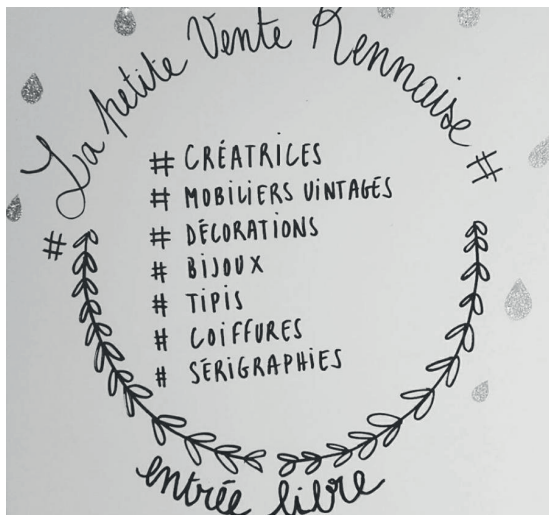 # La petite Vente Rennaise #
# CRÉATRICES
# MOBILIERS VINTAGES
# DÉCORATIONS
# BIJOUX
# TIPIS
# COIFFURES
# SÉRIGRAPHIES
entrée libre